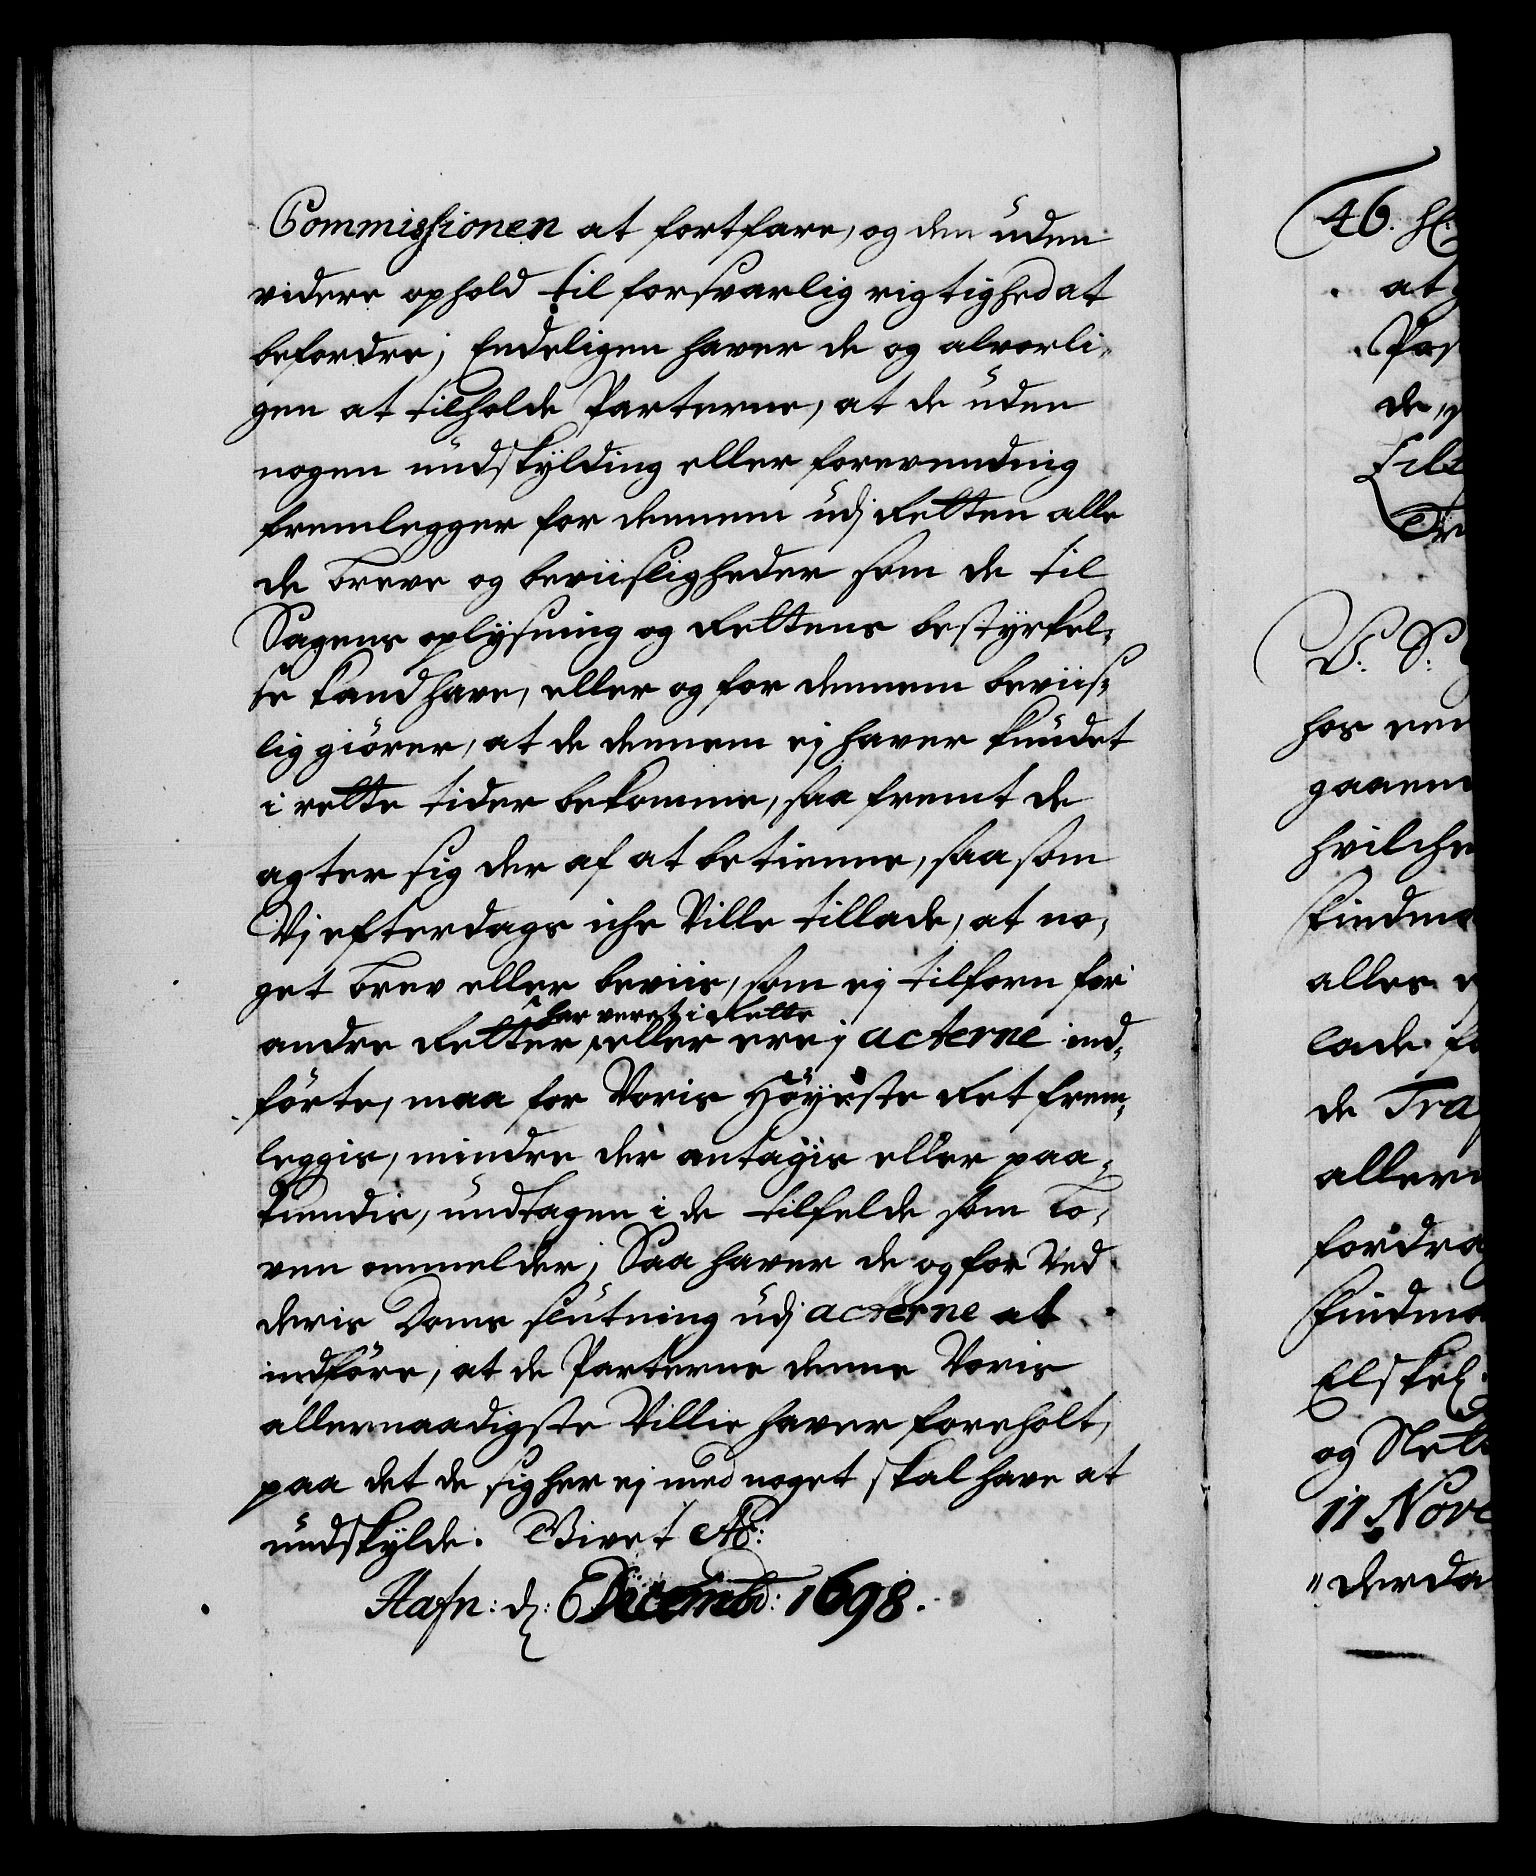 Commissionen at fortfare, og den uden
videre ophold til forsvarlig rigtighed at
befordre; Endeligen haver de og alvorli-
gen at tilholde Parterne, at de uden
nogen undskÿlding eller forevending
fremlegger for dennem udj Retten alle
de breve og beviisligheder som de til
Sagens oplÿsning og Rettens bestÿrkel-
se kand have, eller og for dennem beviis-
lig giörer, at de dennem ej haver kundet
i rette tider bekomme, saa fremt de
agter sig der af at betienne, saa som
Vj efterdags iche Ville tillade, at no-
get brev eller beviis, som ej tilforn for
har veret i Rette
andre Retter, eller ere j acterne ind-
förte, maa for Voris Höÿeste Ret frem-
leggis, mindre der antagis eller paa-
kiendis, undtagen i de tilfelde som Lo-
ven ommelder; Saa haver de og for Ved
deris Doms slutning udj acterne at
indföre, at de Parterne denne Voris
allernaadigste Villie haver foreholt,
paa det de sig her ej med noget skal have at
undskÿlde. Givet
Hafn: d: 6 Decembr: 1698.
46.
at
Pas
de
Tils
Tr
V: S:
hos
gaaen
hvilche
Findma
alles
lade
de Tra
aller
fordra
Findma
Elskel
og Rett
11 Nove
derda